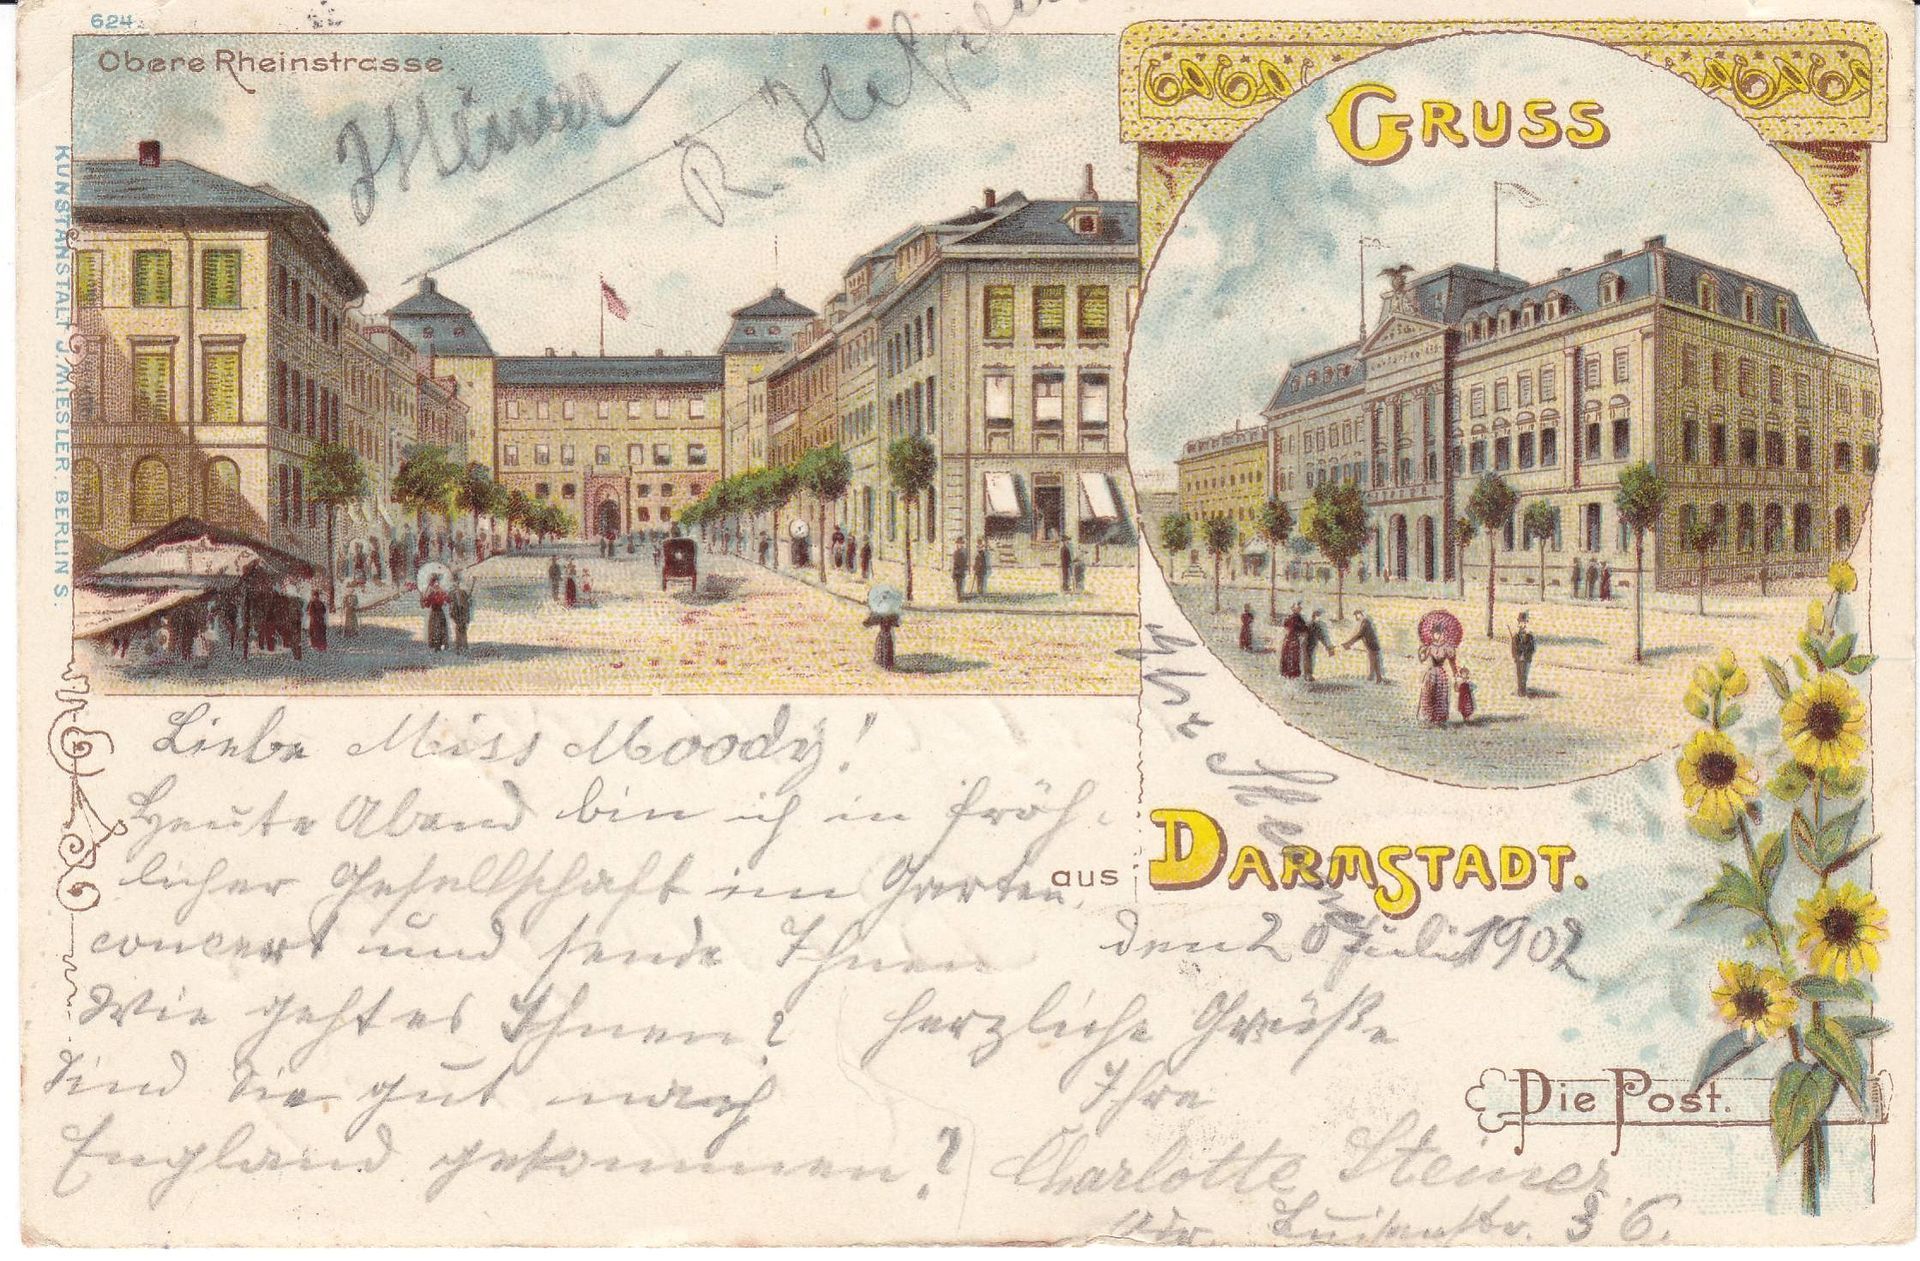 624
Obere Rheinstrasse.
KUNSTANSTALT J. MIESLER. BERLIN S.
GRUSS
aus DARMSTADT.
Die Post.
den 20 Juli 1902
Liebe Miss Moody!
Heute Abend bin ich in fröh-
licher Gesellschaft im Garten
concert und sende Ihnen
herzliche Grüße
Ihre
Charlotte Steiner
Luisenstr. 36.
Wie geht es Ihnen?
Sind Sie gut nach
England gekommen?
Ihr
R.